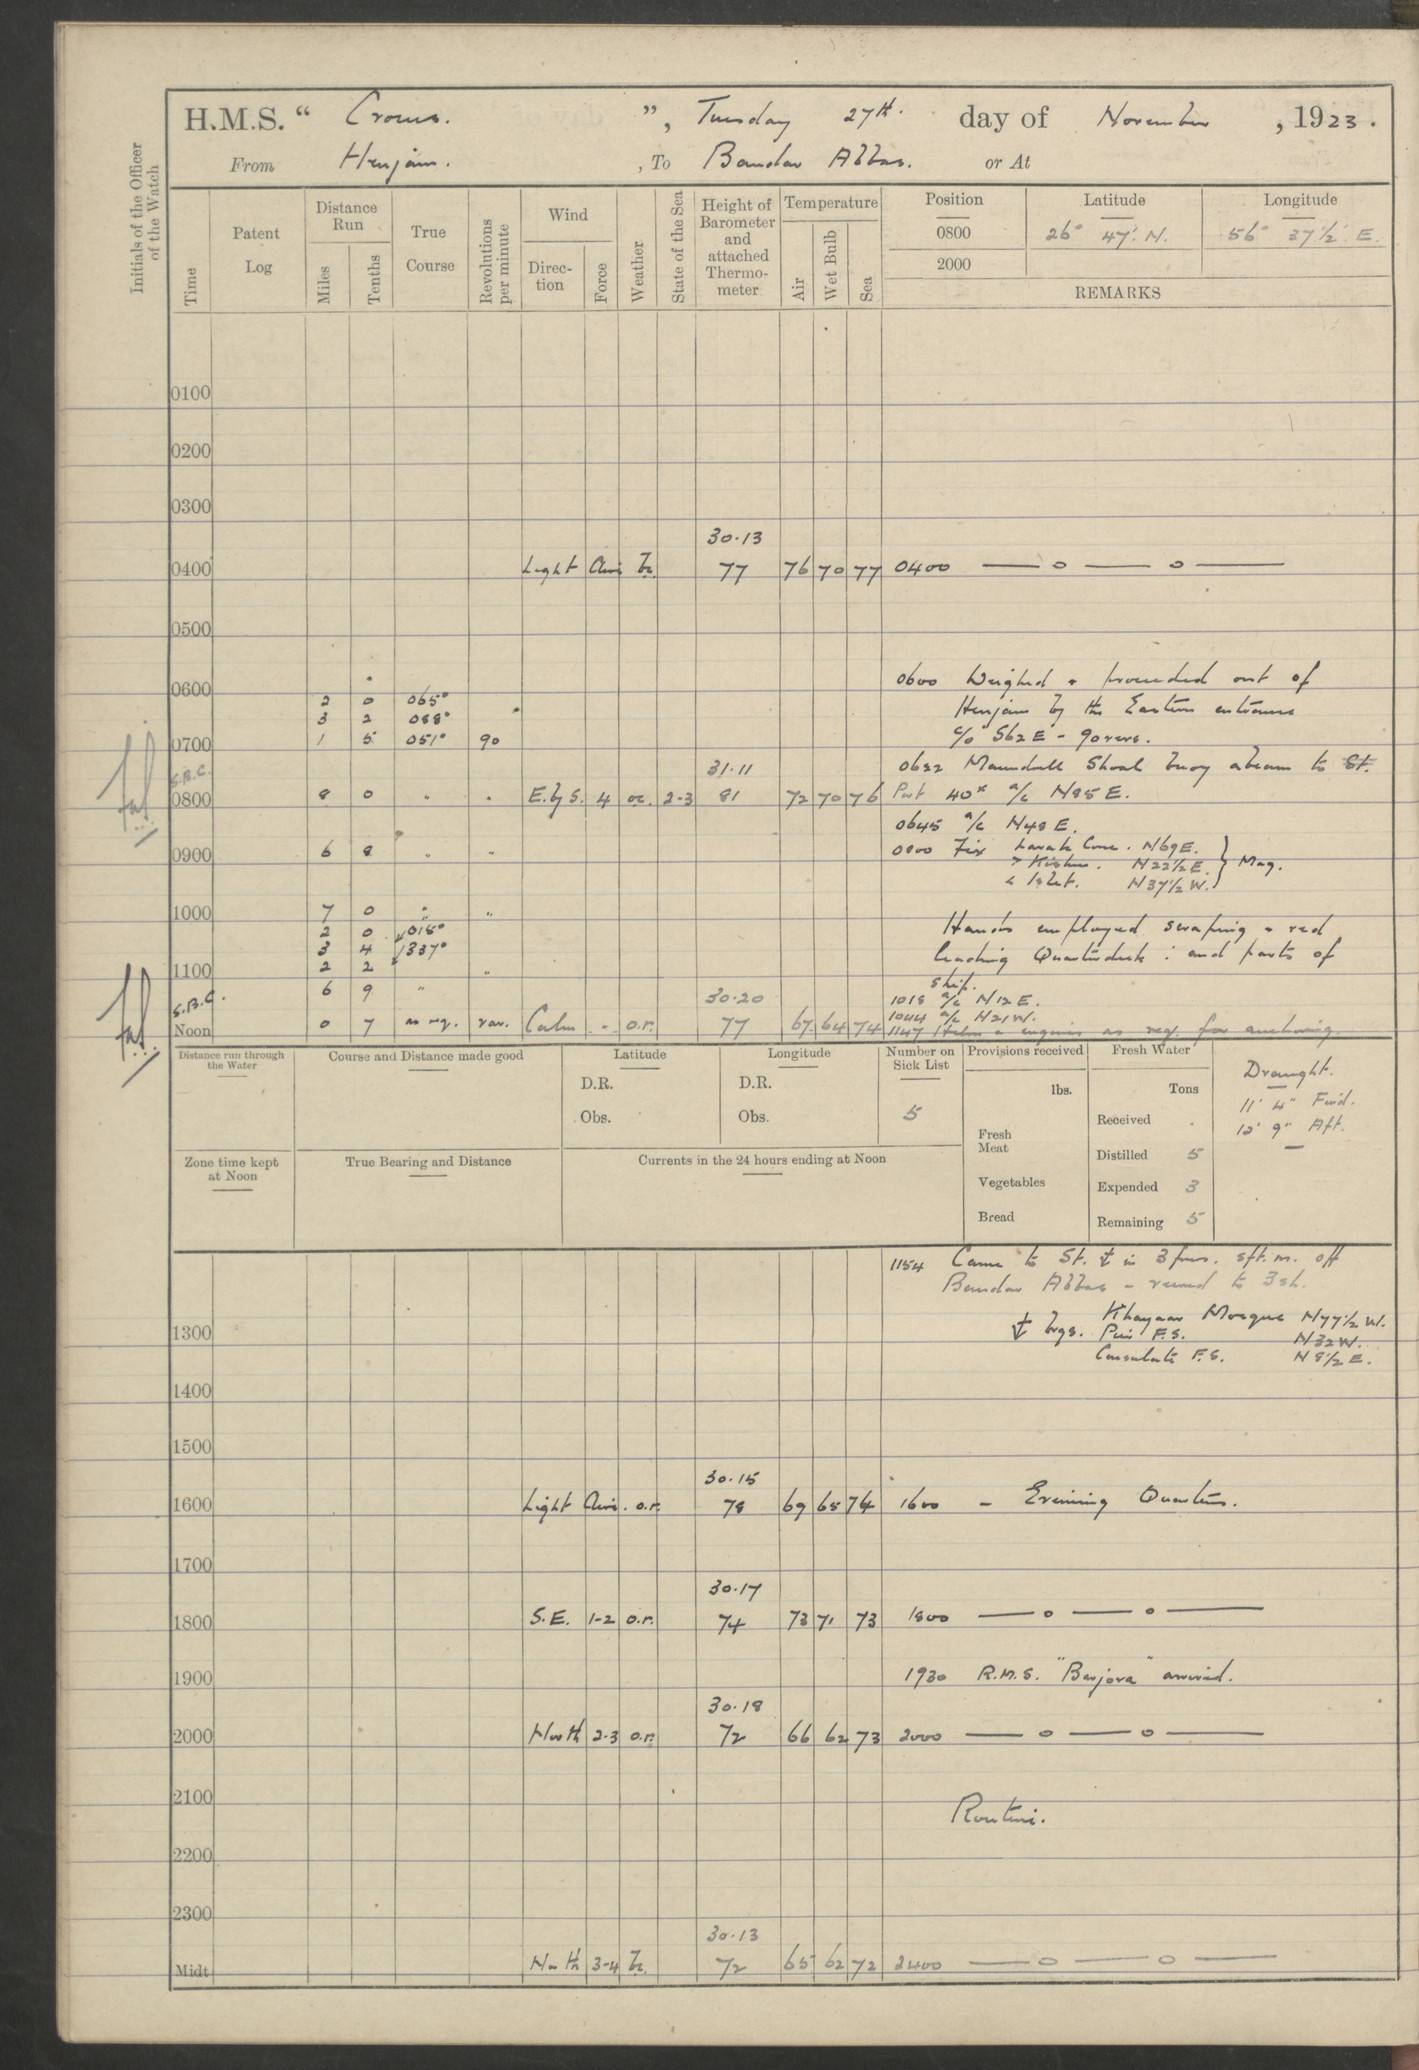 H.M.S. “ Crocus. ”, Tuesday 27th. day of November , 1923.
From Henjam. , To Bandar Abbas. or At
Initials of the Officer of the Watch
Time
Patent Log
Distance Run
Miles
Tenths
True Course
Revolutions per minute
Wind
Direc-tion
Force
Weather
State of the Sea
Height of Barometer and attached Thermo-meter
Temperature
Air
Wet Bulb
Sea
Position Latitude Longitude
0800 26° 47' N. 56° 37½' E.
2000
REMARKS
0100
0200
0300
30.13
0400 Light Airs bc. 77 76 70 77 0400 — o — o —
0500
0600 0600 Weighed & proceeded out of
2 0 065° Henjam by the Eastern entrance
3 2 088°
0700 1 5 051° 90 c/o S62E - 90 revs.
S.B.C. 31.11 0622 Maundrell Shoal buoy abeam to St.
0800 8 0 " " E. by S. 4 oc. 2-3 81 72 70 76 Port 40x a/c N85E.
0645 a/c N48E.
0900 6 8 " " 0800 Fix Larak Cone. N69E.
> Kishm. N22½E. } Mag.
< Islet. N37½W.
1000 7 0 " "
2 0 015° Hands employed scraping & red
3 4 337° leading Quarterdeck : and parts of
1100 2 2 " ship.
6 9 " 30.20 1018 a/c N12E.
S.B.C. 1044 a/c N21W.
Noon 0 7 as req. var. Calm - o.r. 77 67 64 74 1147 Helm & engines as req. for anchoring.
Distance run through the Water
Course and Distance made good
Latitude
D.R.
Obs.
Longitude
D.R.
Obs.
Number on Sick List
5
Provisions received
lbs.
Fresh Meat
Vegetables
Bread
Fresh Water
Tons
Received .
Distilled 5
Expended 3
Remaining 5
Draught.
11' 4" Fwd.
12' 9" Aft.
Zone time kept at Noon
True Bearing and Distance
Currents in the 24 hours ending at Noon
1154 Came to St. ⚓ in 3 fms. sft. m. off
Bandar Abbas - veered to 3 sh.
1300 ⚓ brgs. Mosque N77½W.
Pier F.S. N32W.
Consulate F.S. N8½E.
1400
1500
30.15
1600 Light Airs. o.r. 78 69 65 74 1600 - Evening Quarters.
1700
30.17
1800 S.E. 1-2 o.r. 74 73 71 73 1800 — o — o —
1900 1930 R.M.S. "Barjora" arrived.
30.18
2000 North 2-3 o.r. 72 66 62 73 2000 — o — o —
2100 Routine.
2200
2300
30.13
Midt. North 3-4 bc. 72 65 62 72 2400 — o — o —